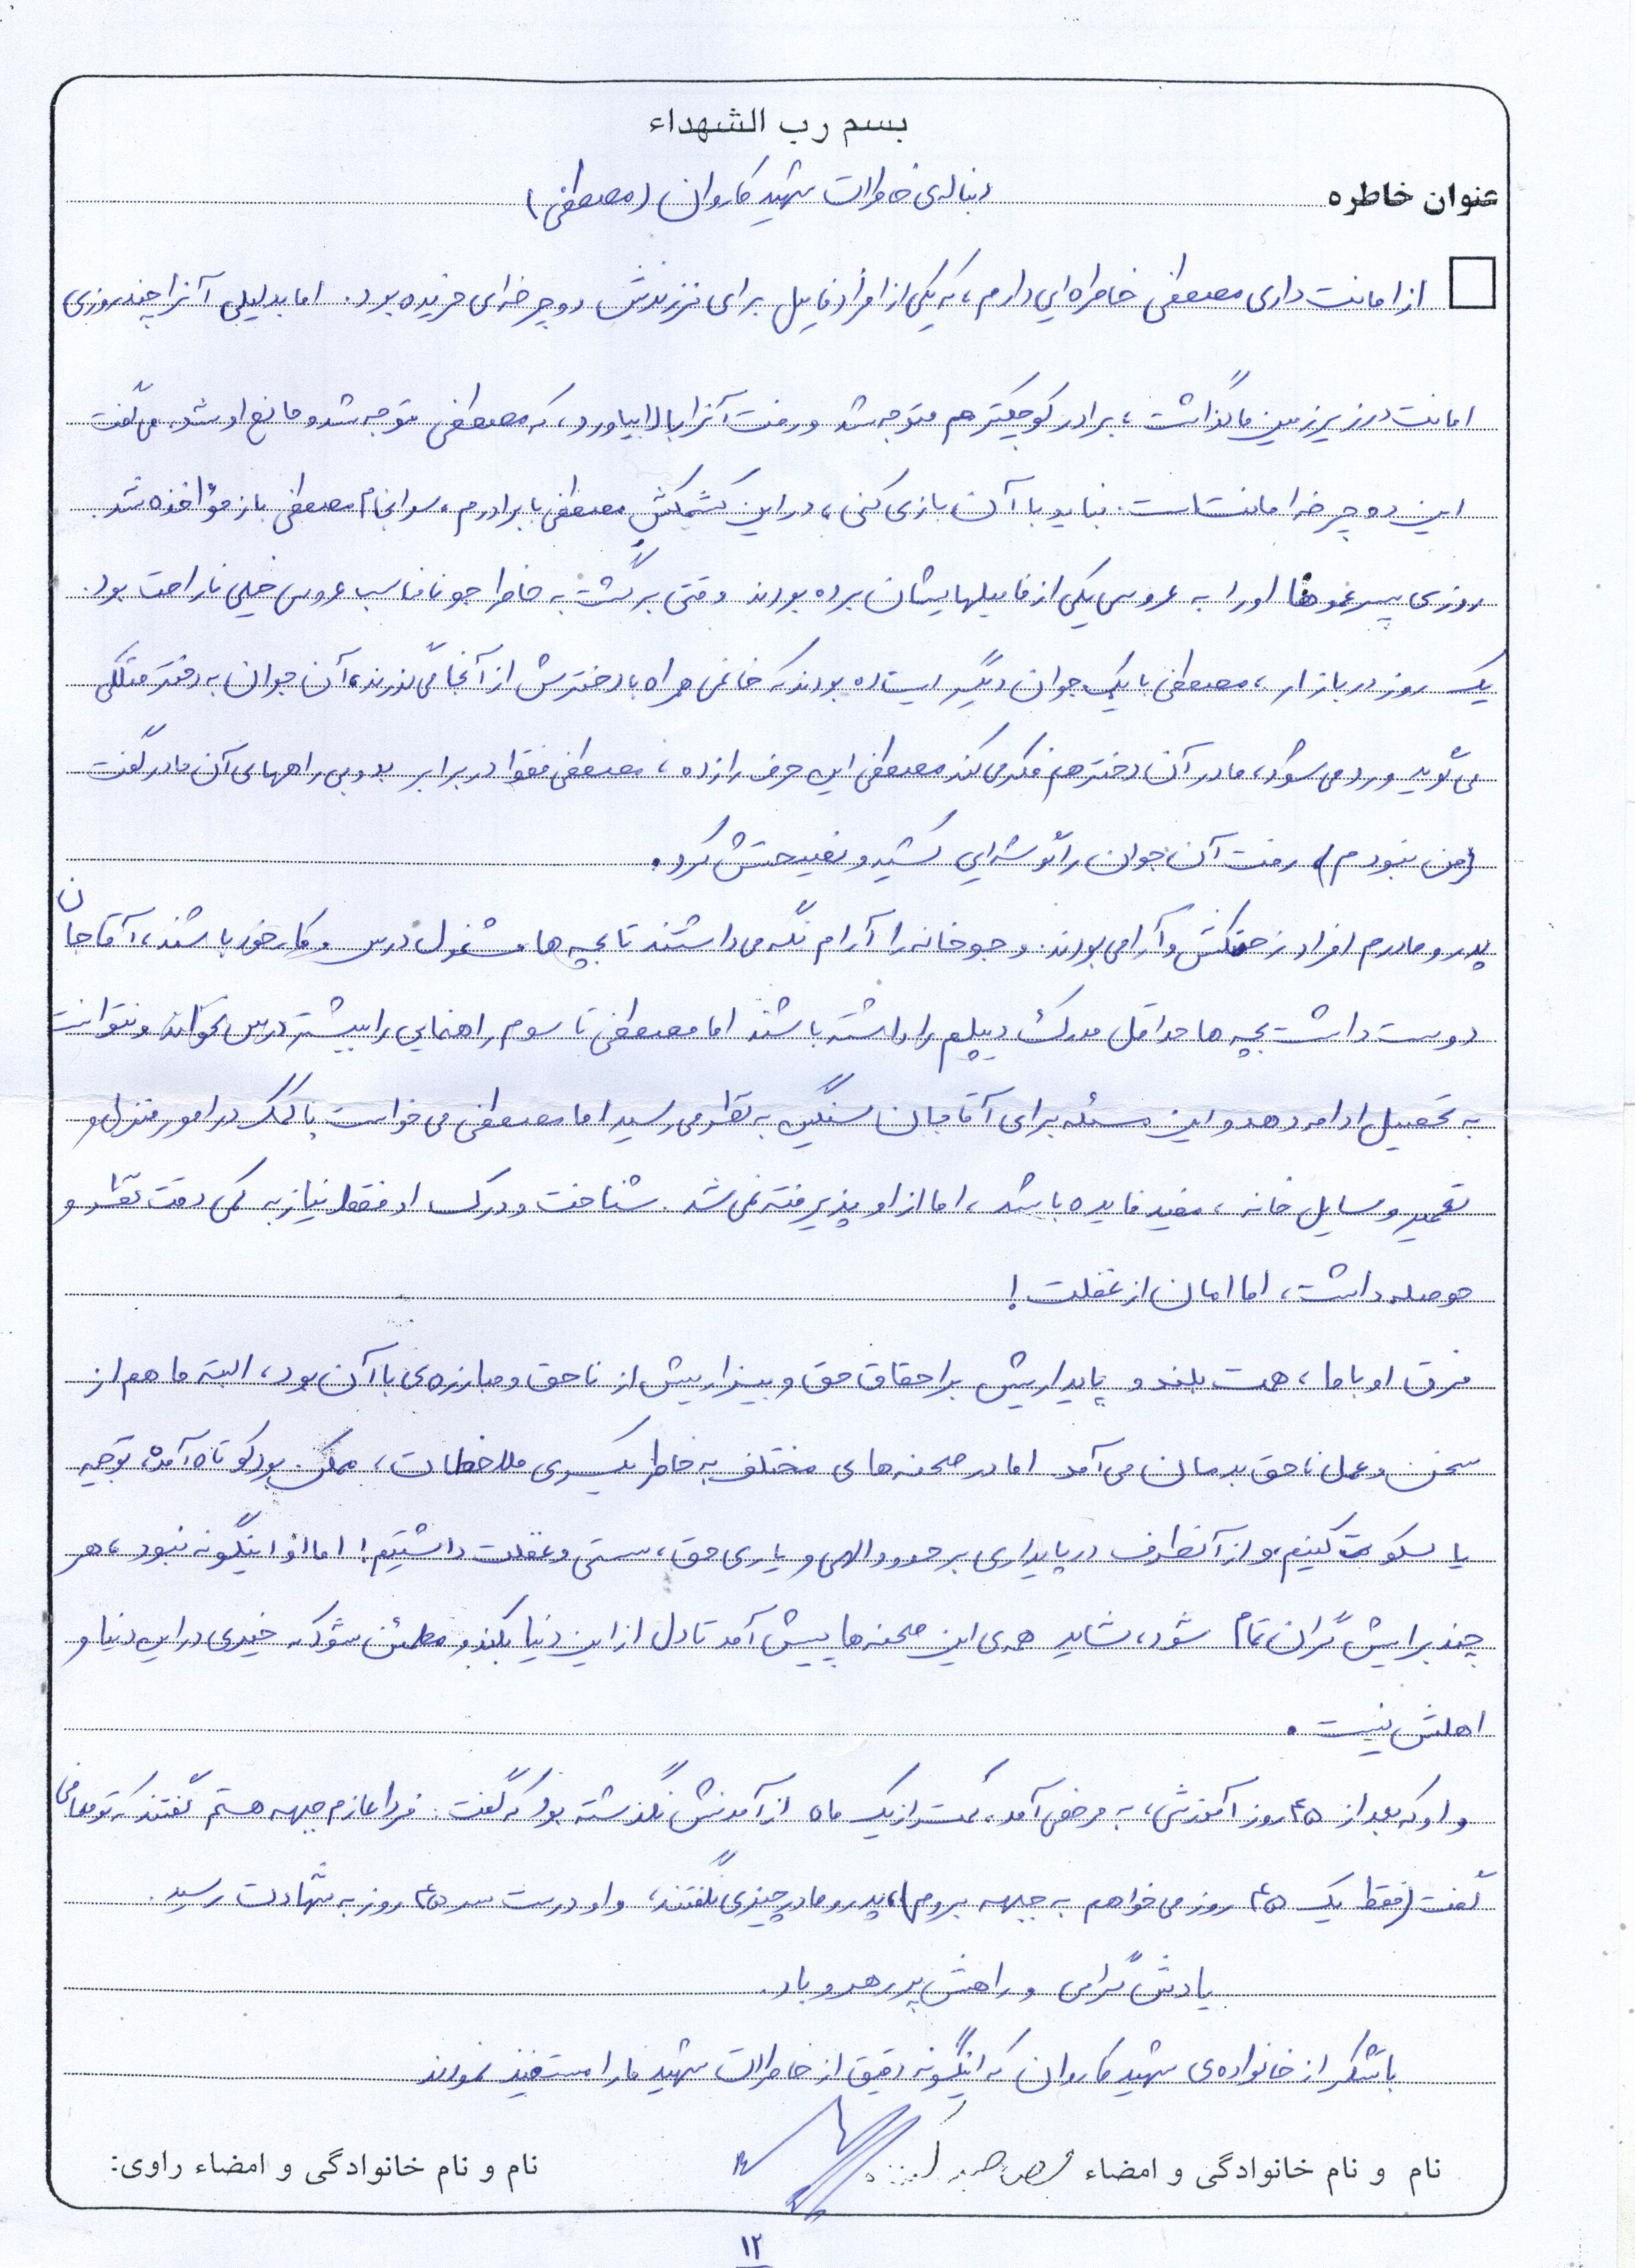 بسم رب الشهداء
عنوان خاطره دنباله‌ی خاطرات شهید کاروان (مصطفی)
از امانت داری مصطفی خاطره‌ای دارم، که یکی از افراد فامیل برای فرزندش دوچرخه‌ای خریده بود. اما بدلیلی آنرا چند روزی
امانت در زیرزمین ما گذاشت، برادر کوچکترم هم متوجه شد و رفت آنرا بالا بیاورد، که مصطفی متوجه شد و مانع او شد. می‌گفت
این دوچرخه امانت است. نباید با آن بازی کنی، در این کشمکش مصطفی با برادرم، سرانجام مصطفی باز مؤاخذه شد.
روزی پسرعموها او را به عروسی یکی از فامیلهایشان برده بودند وقتی برگشت به خاطر جو نامناسب عروسی خیلی ناراحت بود.
یک روز در بازار، مصطفی با یک جوان دیگر ایستاده بودند که خانمی همراه با دخترش از آنجا می‌گذرند، آن جوان به دختر متلکی
می‌گوید و رد می‌شود، مادر آن دختر هم فکر می‌کند مصطفی این حرف را زده، مصطفی فقط در برابر بد و بی راههای آن مادر گفت
(من نبودم) رفت آن جوان را گوشه‌ای کشید و نصیحتش کرد.
پدر و مادرم افراد زحمتکش و آرامی بودند. و جو خانه را آرام نگه می‌داشتند تا بچه‌ها مشغول درس و کار خود باشند، آقاجان
دوست داشت بچه‌ها حداقل مدرک دیپلم را داشته باشند اما مصطفی تا سوم راهنمایی را بیشتر درس نخواند و نتوانست
به تحصیل ادامه دهد و این مسئله برای آقاجان سنگین به نظر می‌رسید اما مصطفی می‌خواست با کمک در امور منزل و
تعمیر وسایل خانه، مفید فایده باشد، اما از او پذیرفته نمی‌شد. شناخت و درک او فقط نیاز به کمی دقت نظر و
حوصله داشت، اما امان از غفلت!
فرق او با ما، همت بلند و پایداریش بر احقاق حق و بیزاریش از ناحق و مبارزه‌ی با آن بود، البته ما هم از
سخن و عمل ناحق بدمان می‌آمد اما در صحنه‌های مختلف به خاطر یکسری ملاحظات، ممکن بود کوتاه آمده، توجیه
یا سکوت کنیم و از آنطرف در پایداری بر حدود الهی و یاری حق، سستی و غفلت داشتیم! اما او اینگونه نبود، هر
چند برایش گران تمام شود، شاید همه‌ی این صحنه‌ها پیش آمد تا دل از این دنیا بکند و مطمئن شود که خیری در این دنیا و
اهلش نیست.
و او که بعد از ۴۵ روز آموزشی، به مرخصی آمد، کمتر از یک ماه از آمدنش نگذشته بود که گفت: فردا عازم جبهه هستم گفتند که تو معافی
گفت (فقط یک ۴۵ روز می‌خواهم به جبهه بروم)، پدر و مادر چیزی نگفتند، و او درست سر ۴۵ روز به شهادت رسید.
یادش گرامی و راهش پر رهرو باد.
با تشکر از خانواده‌ی شهید کاروان که اینگونه دقیق از خاطرات شهید ما را مستفیذ نمودند
نام و نام خانوادگی و امضاء
نام و نام خانوادگی و امضاء راوی:
۱۲